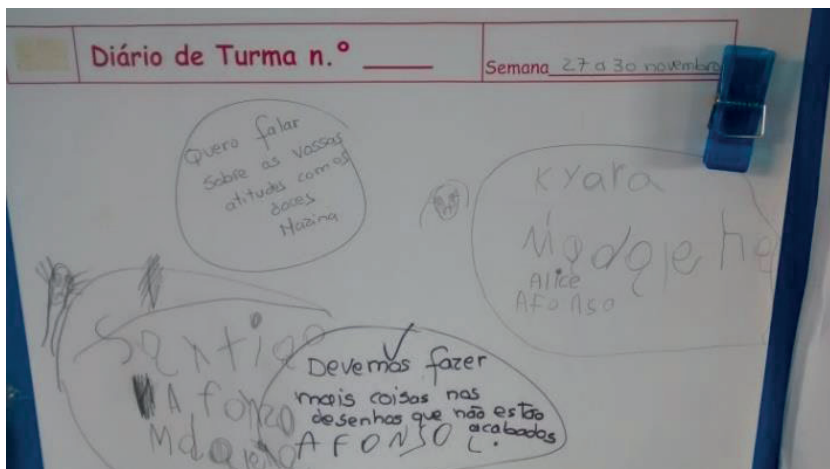 Diário de Turma n.º ____
Semana 27 a 30 novembro
Quero falar
sobre as vossas
atitudes com os
doces
Nazina
Kyara
Madalena
Alice
AFONSO
Santiago
Afonso
Devemos fazer
mais coisas nos
desenhos que não estão
acabados
AFONSO C.